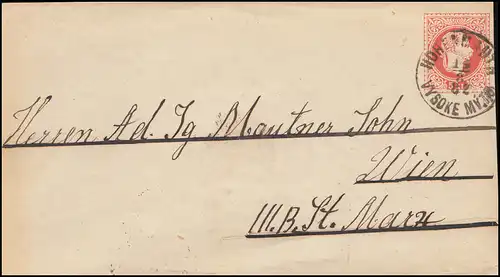 HOHENMAUTH
12
3
82
VYSOKE MYTO
Herren Ad. Ig Mautner Sohn
Wien
III.B. St. Marx